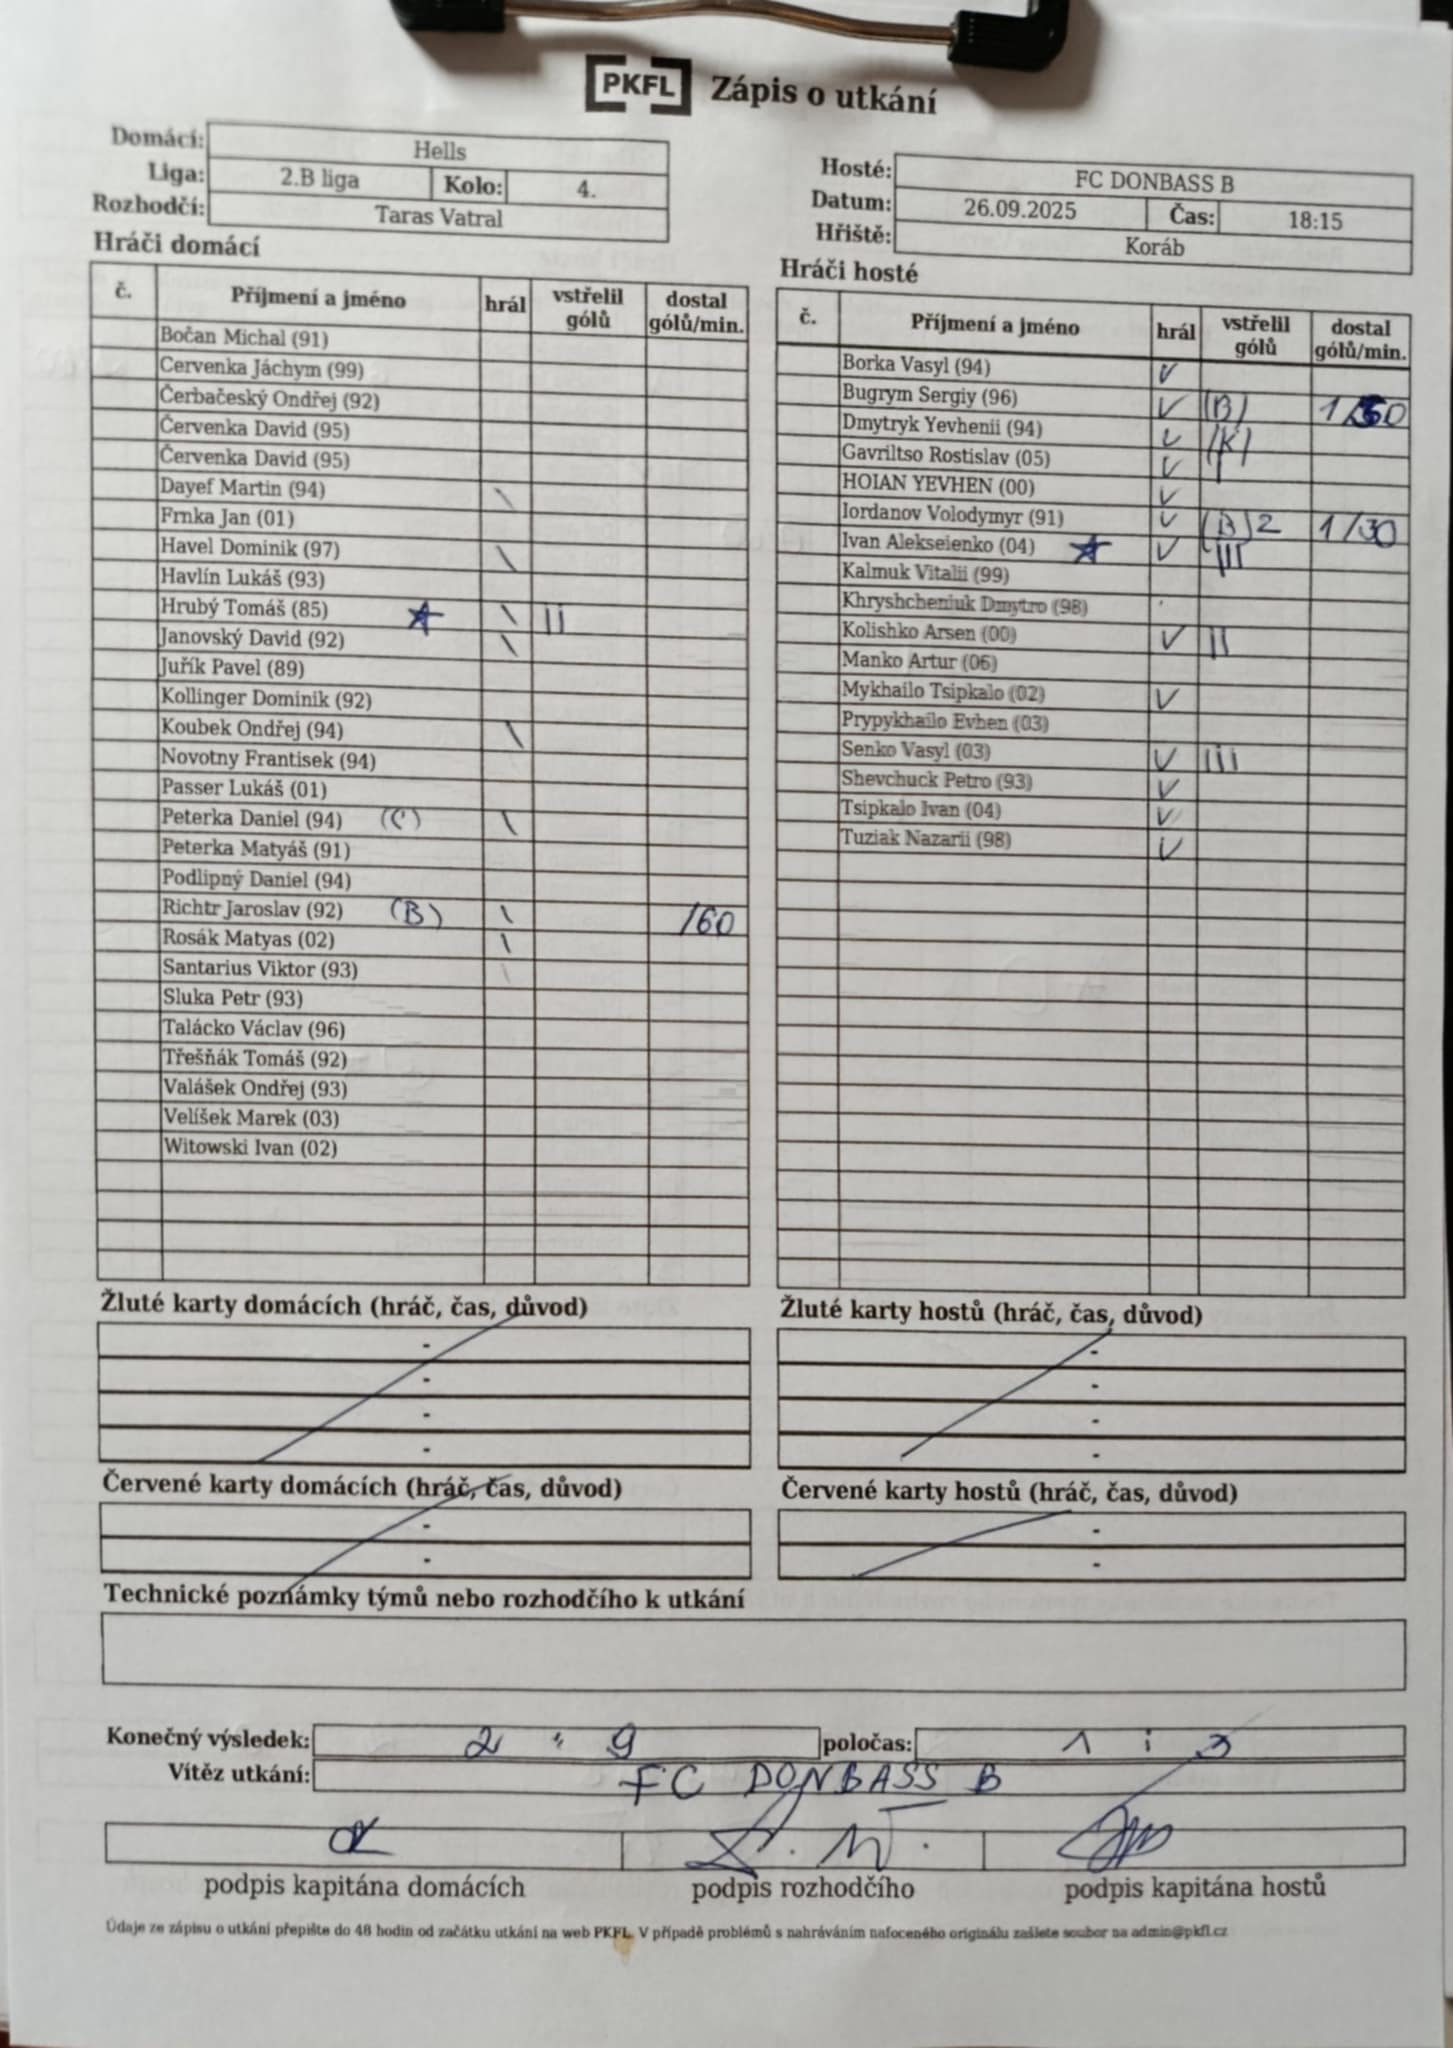 PKFL Zápis o utkání
Domácí: Hells
Liga: 2.B liga Kolo: 4.
Rozhodčí: Taras Vatral
Hosté: FC DONBASS B
Datum: 26.09.2025 Čas: 18:15
Hřiště: Koráb
Hráči domácí
č. Příjmení a jméno hrál vstřelil gólů dostal gólů/min.
Bočan Michal (91)
Červenka Jáchym (99)
Čerbačeský Ondřej (92)
Červenka David (95)
Červenka David (95)
Dayef Martin (94) \
Frnka Jan (01)
Havel Dominik (97) \
Havlín Lukáš (93)
Hrubý Tomáš (85) ★ \ II
Janovský David (92) \
Juřík Pavel (89)
Kollinger Dominik (92)
Koubek Ondřej (94) \
Novotny Frantisek (94)
Passer Lukáš (01)
Peterka Daniel (94) (C) \
Peterka Matyáš (91)
Podlipný Daniel (94)
Richtr Jaroslav (92) (B) \ /60
Rosák Matyas (02) \
Santarius Viktor (93) \
Sluka Petr (93)
Talácko Václav (96)
Třešňák Tomáš (92)
Valášek Ondřej (93)
Velíšek Marek (03)
Witowski Ivan (02)
Hráči hosté
č. Příjmení a jméno hrál vstřelil gólů dostal gólů/min.
Borka Vasyl (94) ✓
Bugrym Sergiy (96) ✓ (B)
Dmytryk Yevhenii (94) ✓ (K)
Gavriltso Rostislav (05) ✓ I
HOIAN YEVHEN (00) ✓
Iordanov Volodymyr (91) ✓ (B) 2 1/30
Ivan Alekseienko (04) ★ ✓ III
Kalmuk Vitalii (99)
Khryshcheniuk Dmytro (98)
Kolishko Arsen (00) ✓ II
Manko Artur (06)
Mykhailo Tsipkalo (02) ✓
Prypykhailo Evhen (03)
Senko Vasyl (03) ✓ III
Shevchuck Petro (93) ✓
Tsipkalo Ivan (04) ✓
Tuziak Nazarii (98) ✓
Žluté karty domácích (hráč, čas, důvod)
-
-
-
-
Žluté karty hostů (hráč, čas, důvod)
-
-
-
-
Červené karty domácích (hráč, čas, důvod)
-
-
Červené karty hostů (hráč, čas, důvod)
-
-
Technické poznámky týmů nebo rozhodčího k utkání
Konečný výsledek: 2 : 9 poločas: 1 : 3
Vítěz utkání: FC DONBASS B
podpis kapitána domácích podpis rozhodčího podpis kapitána hostů
Údaje ze zápisu o utkání přepište do 48 hodin od začátku utkání na web PKFL. V případě problémů s nahráváním nafoceného originálu zašlete soubor na admin@pkfl.cz